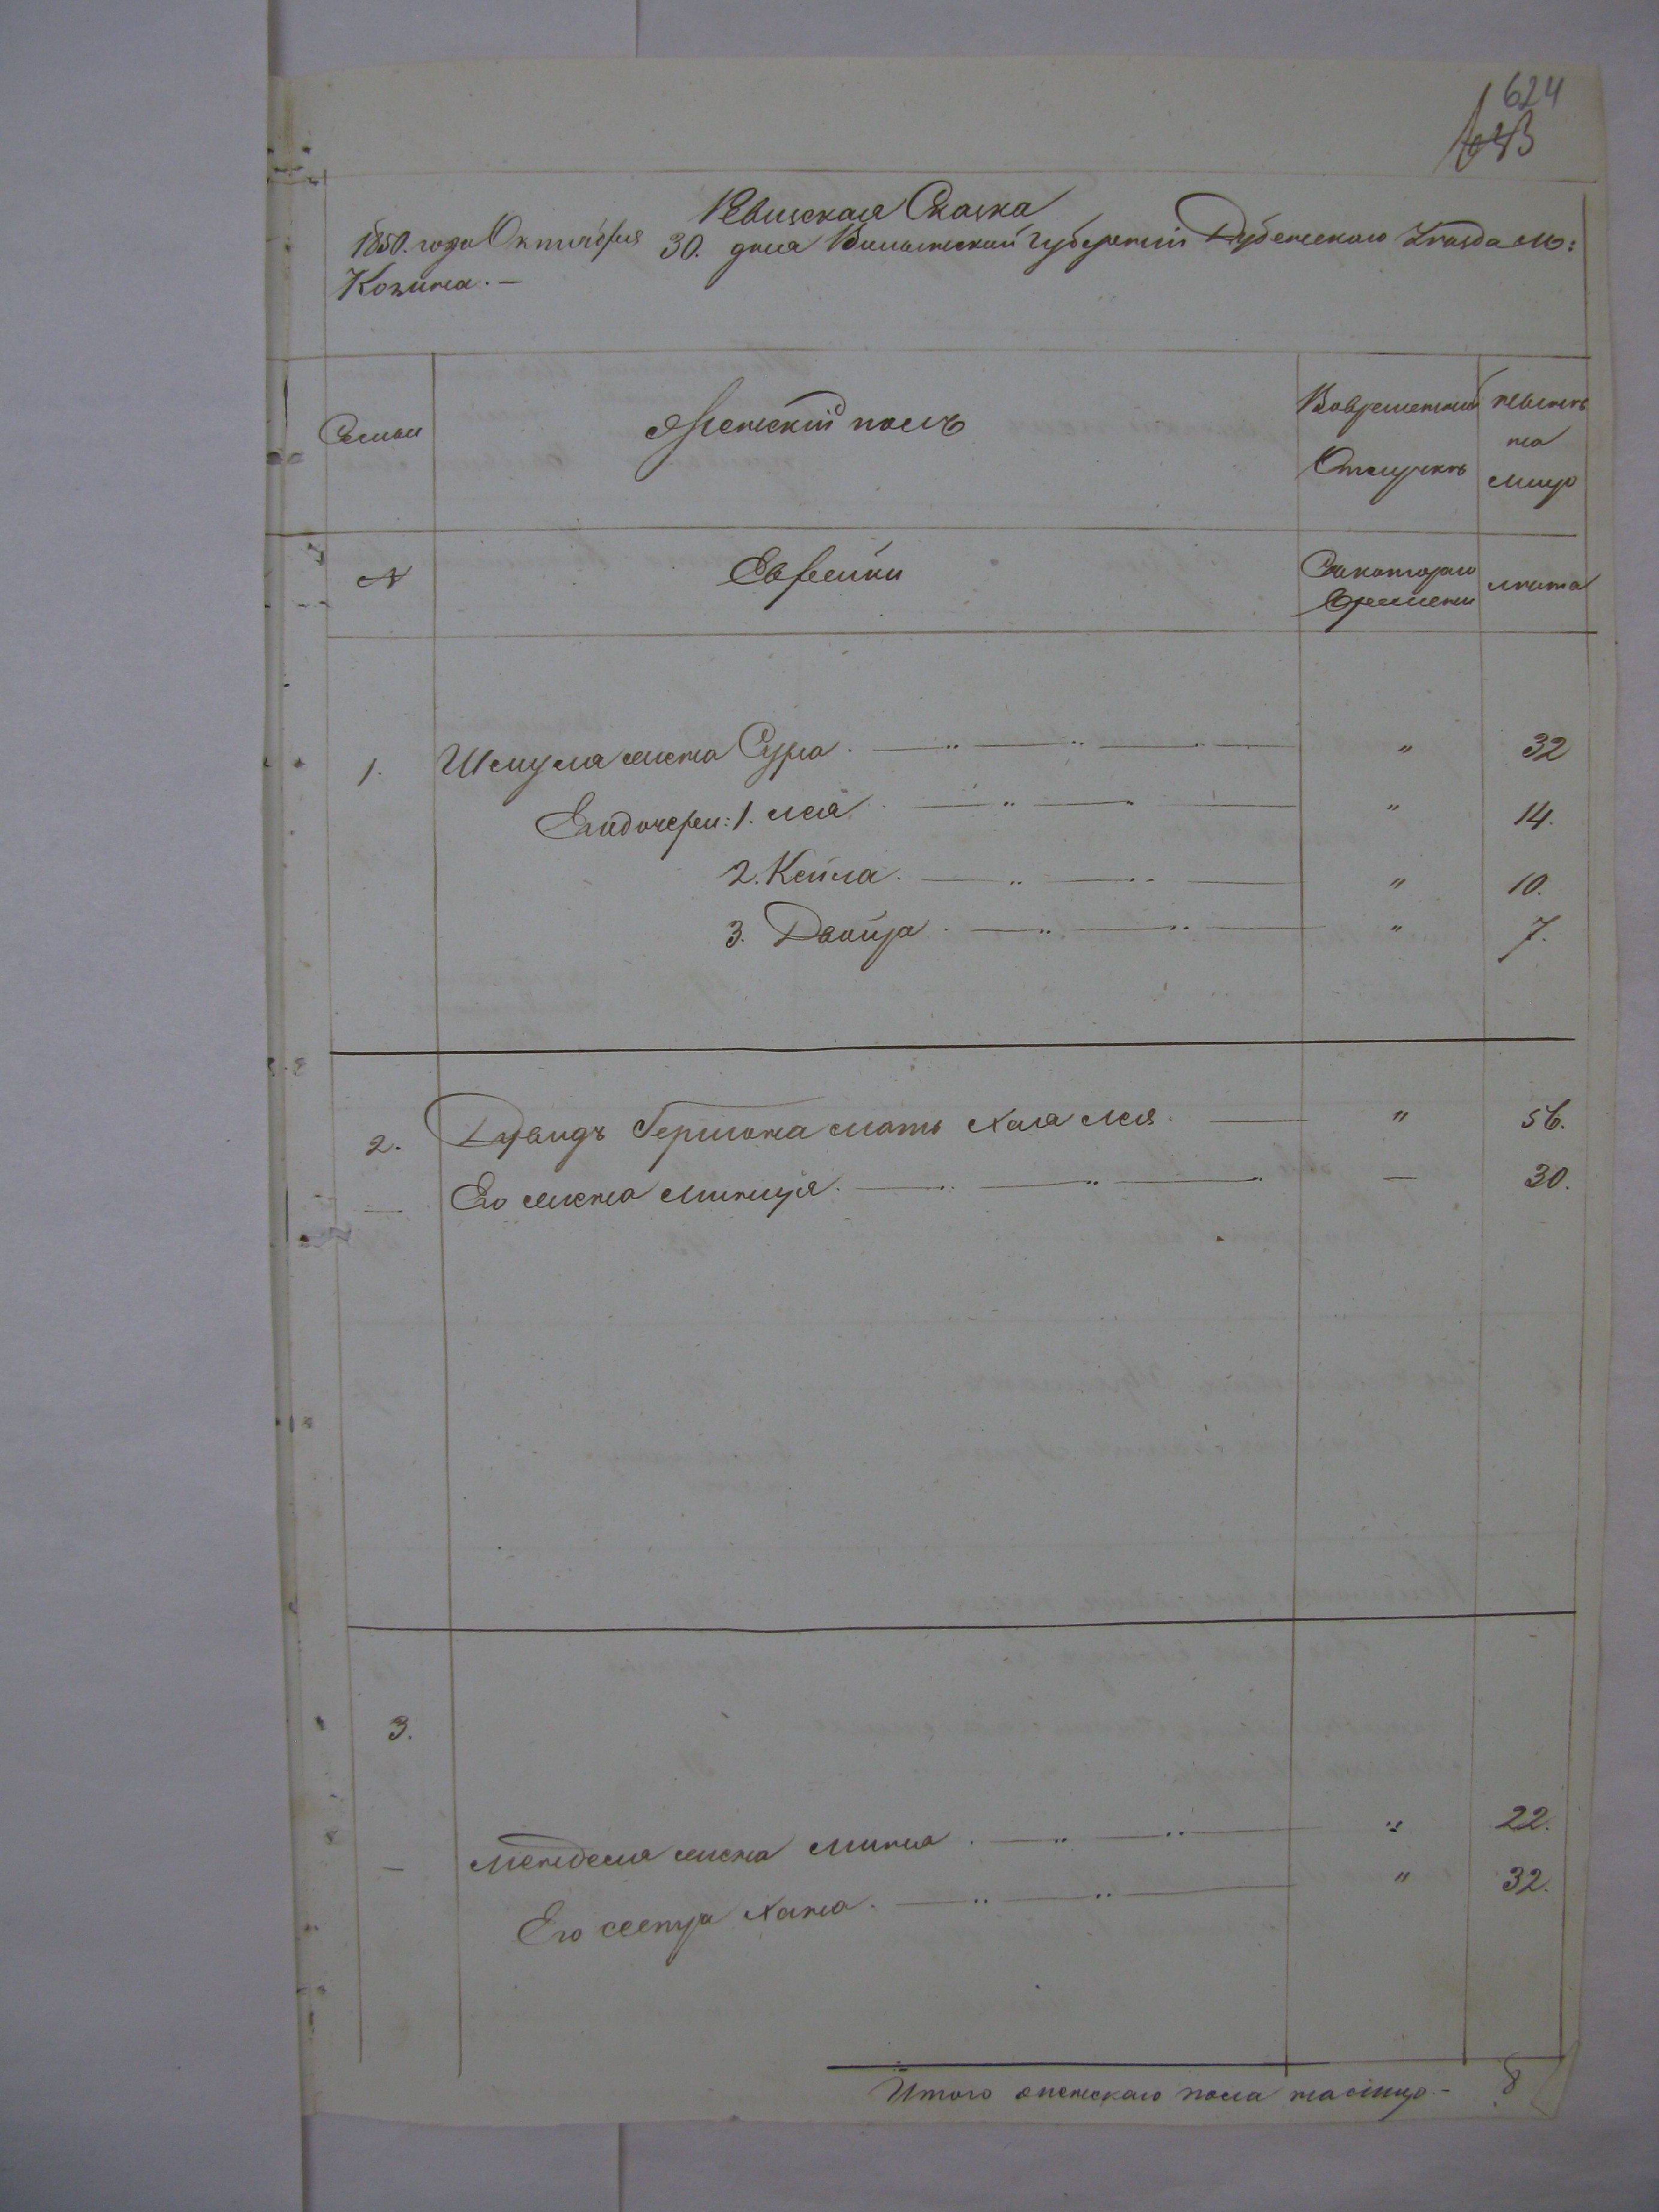 624
Ревизская Сказка
1850. года Октября 30. дня Волынской Губернии Дубенского Уезда м:
Козина. —
Семьи
Женский полъ
Вовременной Отлучкѣ
нынѣ на лицо
N
Еврейки
Скотораго Времени
лѣта
1. Шмуля жена Сура. " 32
Его дочери: 1. Лея " 14.
2. Кейла. " 10.
3. Двойра. " 7.
2. Дувидъ Гершона мать Хая Лея. " 56.
— Его жена Минця. — 30.
3.
— Менделя жена Мина. " 22.
Его сестра Хана. " 32.
Итого женскаго пола налицо — 8